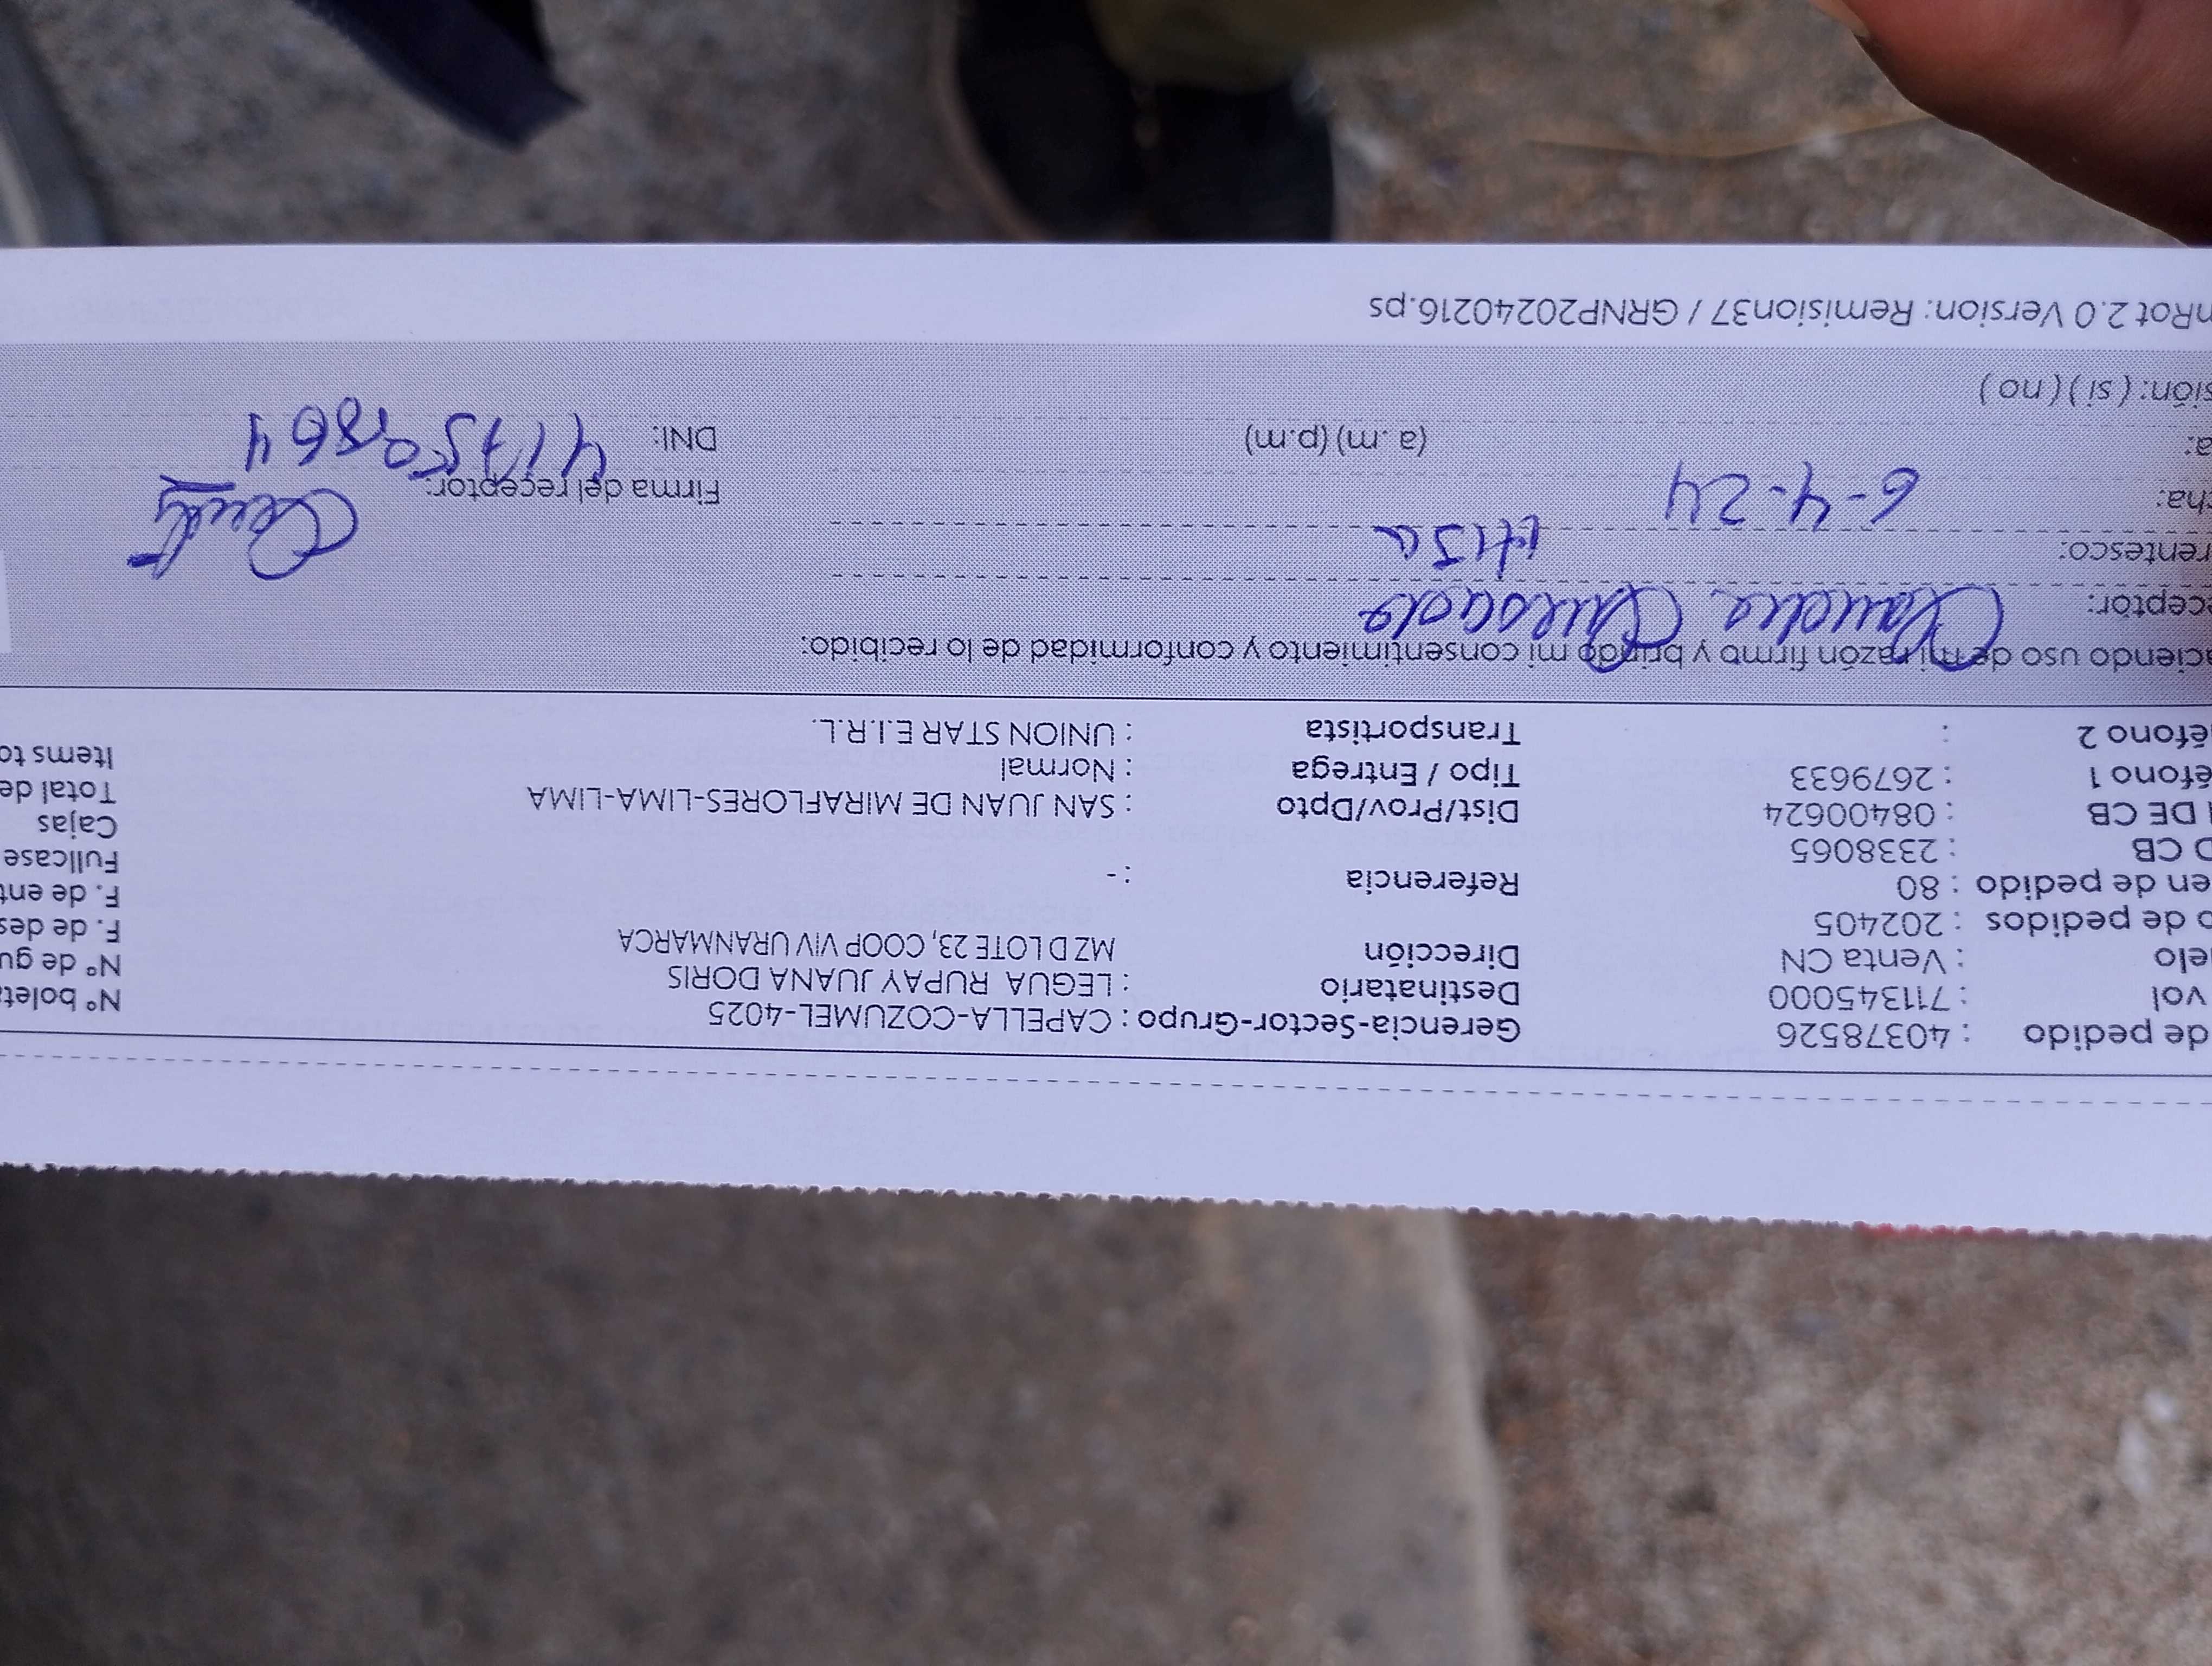 de pedido : 40378526 Gerencia-Sector-Grupo : CAPELLA-COZUMEL-4025 N° boleta
vol : 711345000 Destinatario : LEGUA RUPAY JUANA DORIS N° de gu
elo : Venta CN Dirección MZ D LOTE 23, COOP VIV URANMARCA F. de des
o de pedidos : 202405 F. de ent
en de pedido : 80 Referencia : - Fullcase
O CB : 2338065 Cajas
I DE CB : 08400624 Dist/Prov/Dpto : SAN JUAN DE MIRAFLORES-LIMA-LIMA Total de
éfono 1 : 2679633 Tipo / Entrega : Normal Items to
éfono 2 : Transportista : UNION STAR E.I.R.L.
aciendo uso de mi razón firmo y brindo mi consentimiento y conformidad de lo recibido:
ceptor: Claudia Quesada
rentesco: HiJa
cha: 6-4-24 Firma del receptor:
a: (a.m) (p.m) DNI: 41750864
sión: ( si ) ( no )
nRot 2.0 Version: Remision37 / GRNP20240216.ps